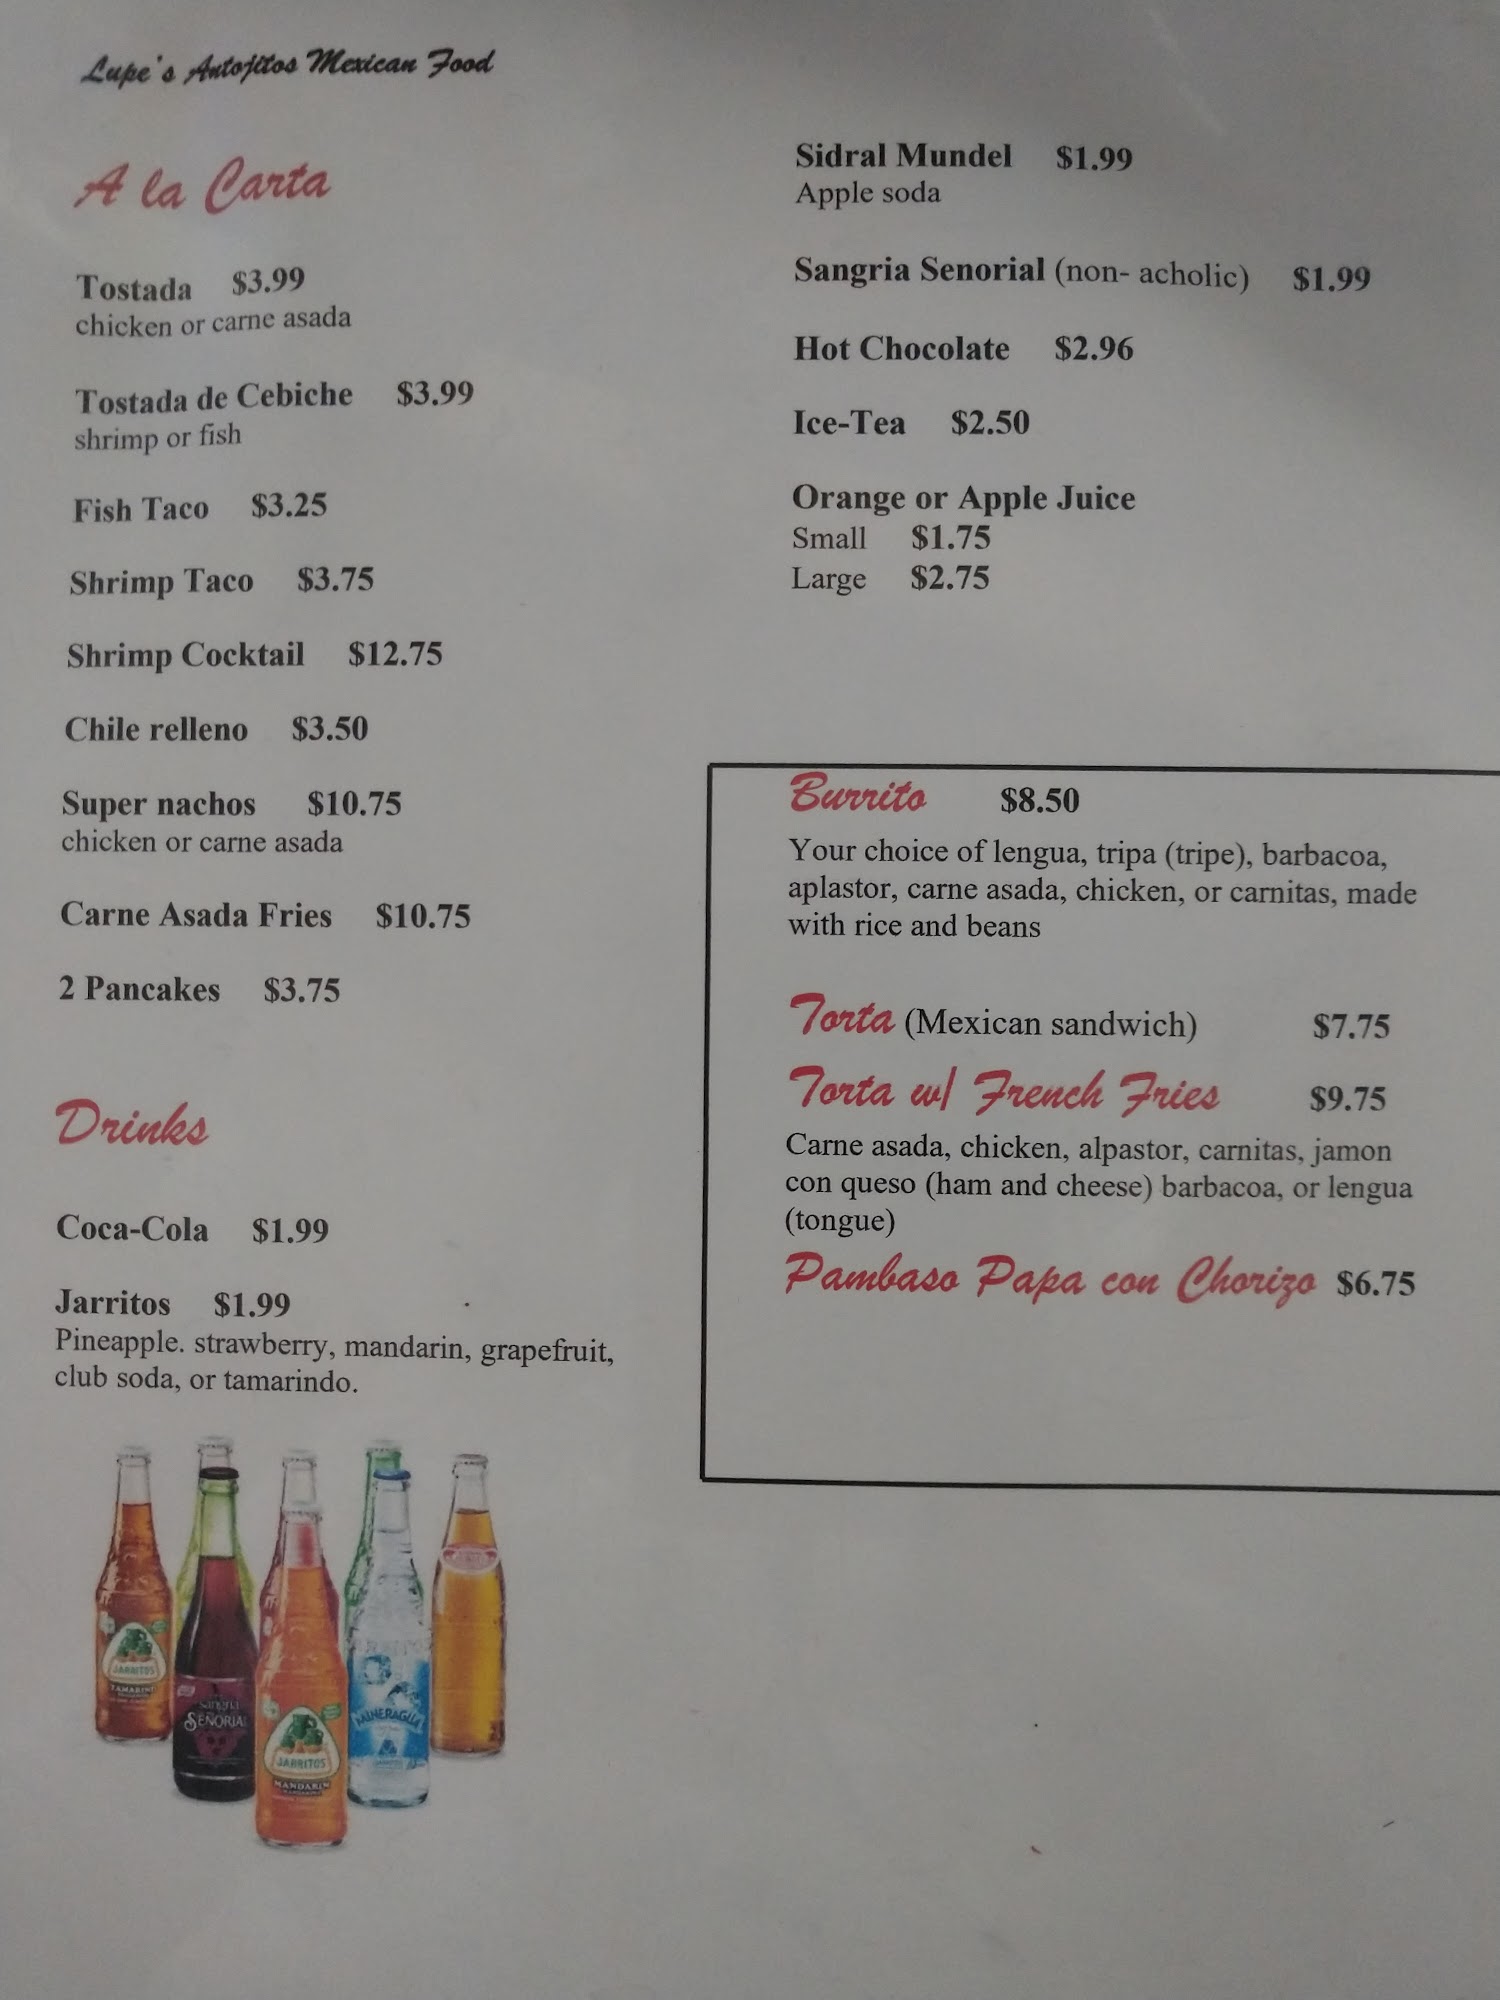 Lupe's Antojitos Mexican Food
A la Carta
Tostada $3.99
chicken or carne asada
Tostada de Cebiche $3.99
shrimp or fish
Fish Taco $3.25
Shrimp Taco $3.75
Shrimp Cocktail $12.75
Chile relleno $3.50
Super nachos $10.75
chicken or carne asada
Carne Asada Fries $10.75
2 Pancakes $3.75
Drinks
Coca-Cola $1.99
Jarritos $1.99
Pineapple. strawberry, mandarin, grapefruit,
club soda, or tamarindo.
JARRITOS
TAMARIND
sangria
SEÑORIAL
JARRITOS
MANDARIN
MINERAGUA
Sidral Mundel $1.99
Apple soda
Sangria Senorial (non- acholic) $1.99
Hot Chocolate $2.96
Ice-Tea $2.50
Orange or Apple Juice
Small $1.75
Large $2.75
Burrito $8.50
Your choice of lengua, tripa (tripe), barbacoa,
aplastor, carne asada, chicken, or carnitas, made
with rice and beans
Torta (Mexican sandwich) $7.75
Torta w/ French Fries $9.75
Carne asada, chicken, alpastor, carnitas, jamon
con queso (ham and cheese) barbacoa, or lengua
(tongue)
Pambaso Papa con Chorizo $6.75